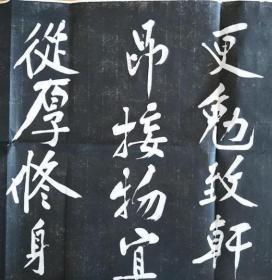 更勉致軒
昂接物宜
從厚修身